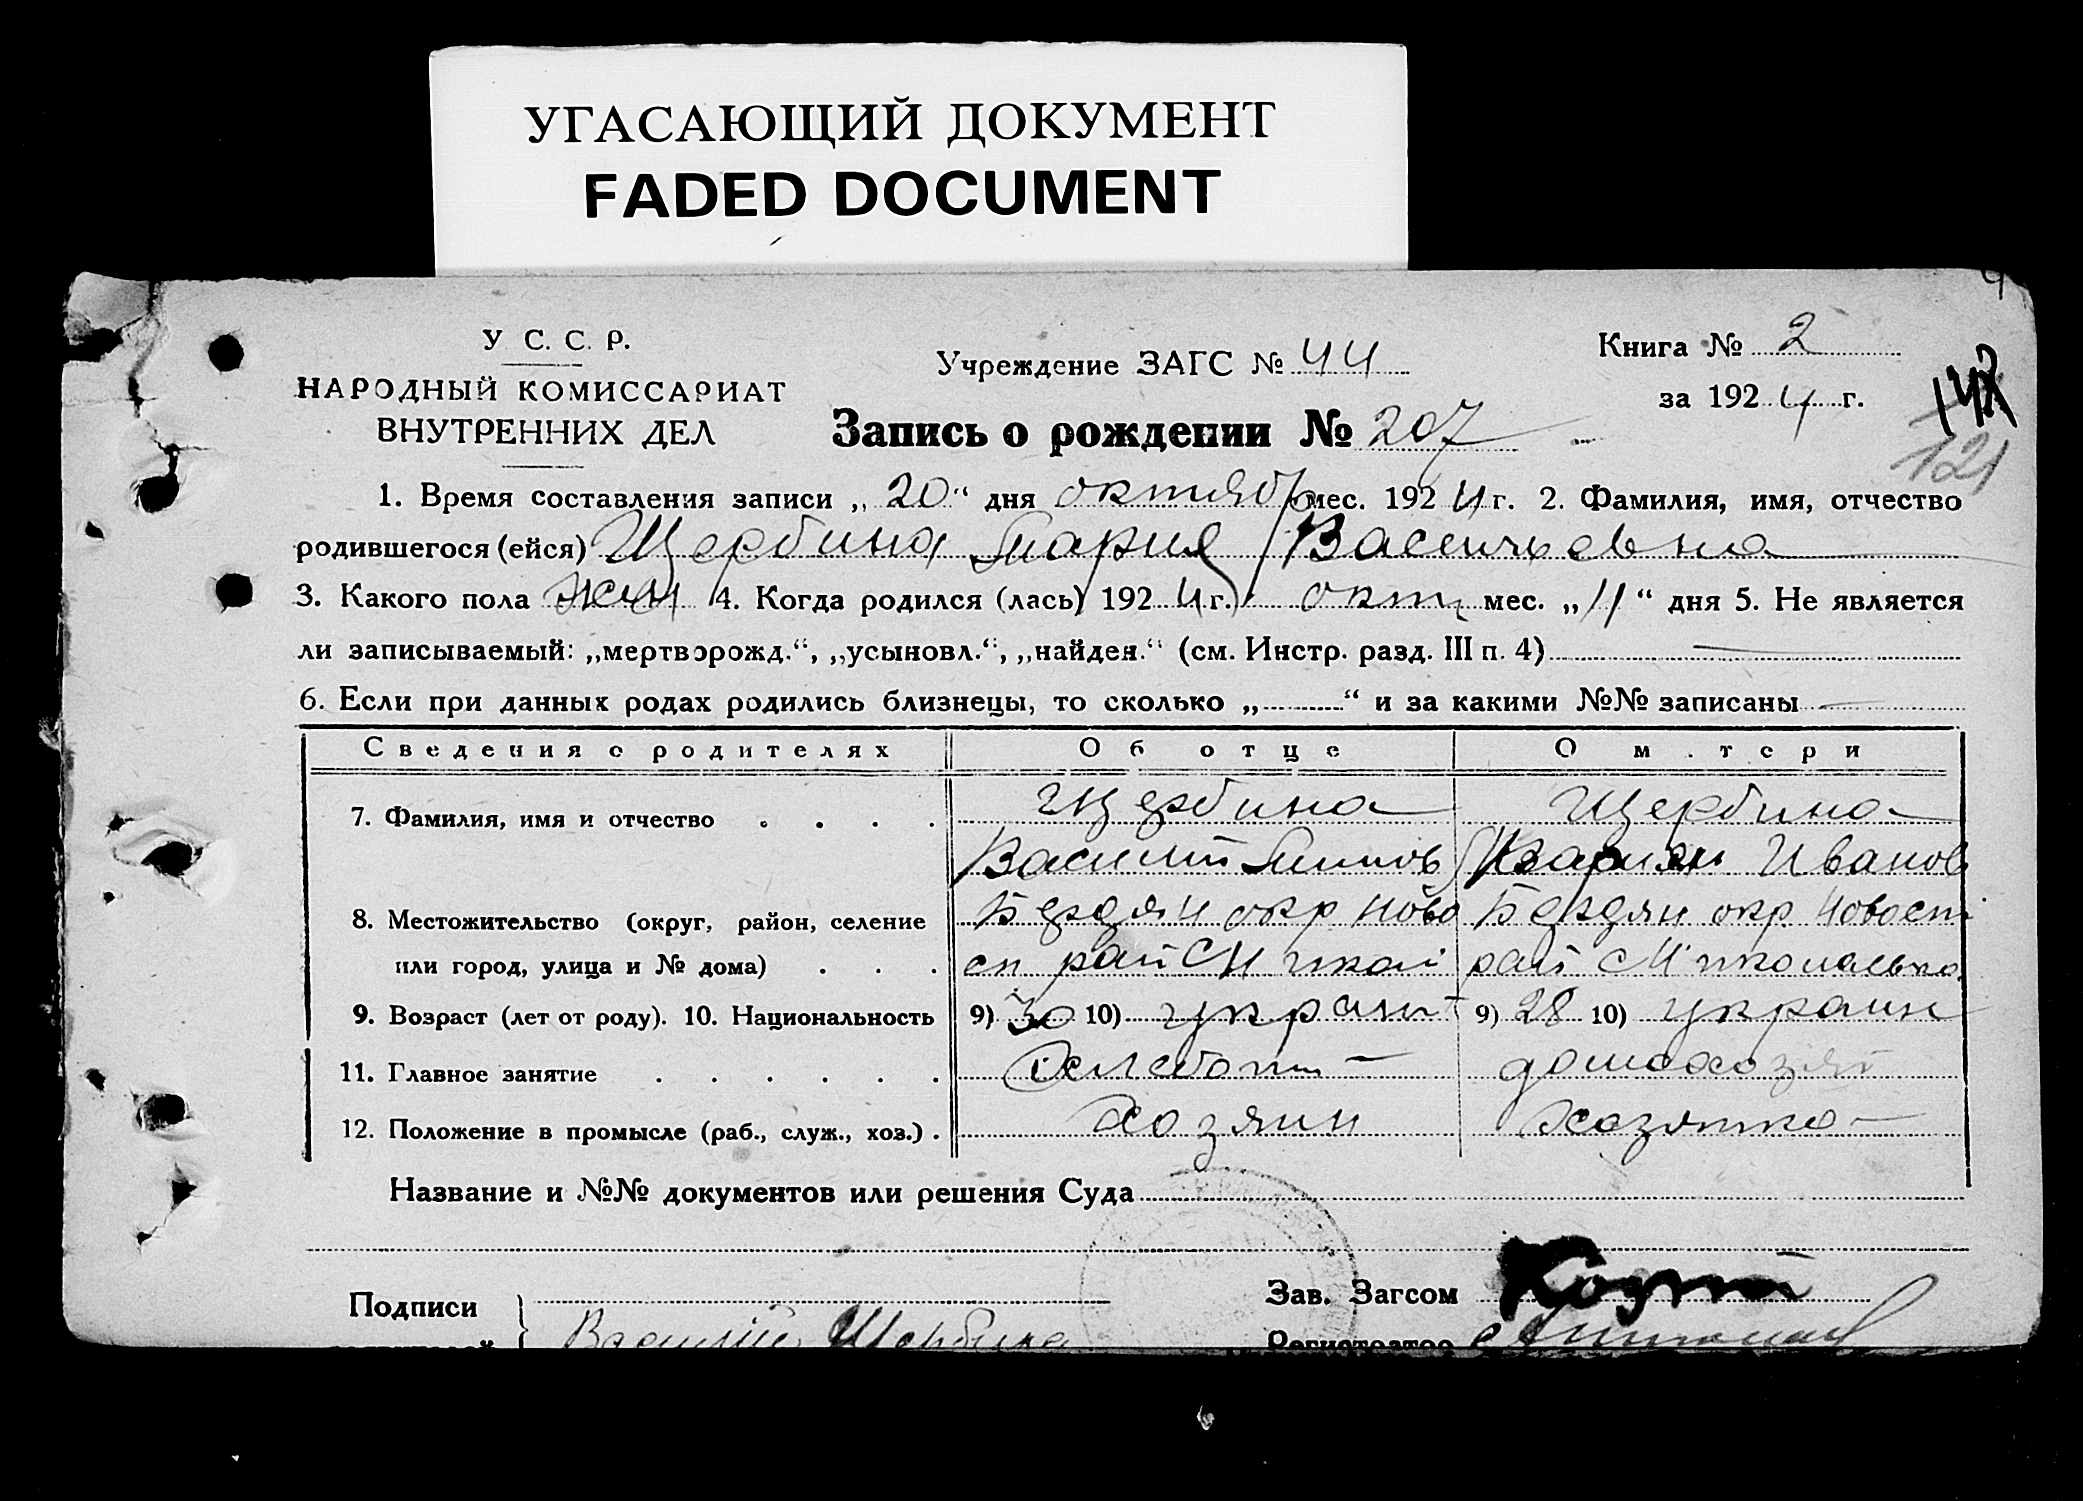 УГАСАЮЩИЙ ДОКУМЕНТ
FADED DOCUMENT
У С. С. Р.
НАРОДНЫЙ КОМИССАРИАТ
ВНУТРЕННИХ ДЕЛ
Учреждение ЗАГС № 44
Книга № 2
за 1924 г.
121
Запись о рождении № 207
1. Время составления записи „20“ дня октябр мес. 1924 г. 2. Фамилия, имя, отчество
родившегося (ейся) Щербина Мария Васильевна
3. Какого пола жен 4. Когда родился (лась) 1924 г. окт мес. „11“ дня 5. Не является
ли записываемый: „мертворожд.“, „усыновл.“, „найден.“ (см. Инстр. разд. III п. 4)
6. Если при данных родах родились близнецы, то сколько „ “ и за какими №№ записаны —
Сведения о родителях Об отце О м.тери
7. Фамилия, имя и отчество . . . . Щербина Щербина
Василий Иванов
8. Местожительство (округ, район, селение Бердян окр Ново Бердян окр. Новосп
или город, улица и № дома) . . . сп рай С Н район с
9. Возраст (лет от роду). 10. Национальность 9) 30 10) украин 9) 28 10) украин
11. Главное занятие . . . . . . Хлебоп — домохозяй
12. Положение в промысле (раб., служ., хоз.) . хозяин хозяйка —
Название и №№ документов или решения Суда
Подписи
Зав. Загсом
Василий Щербина
Регистратор